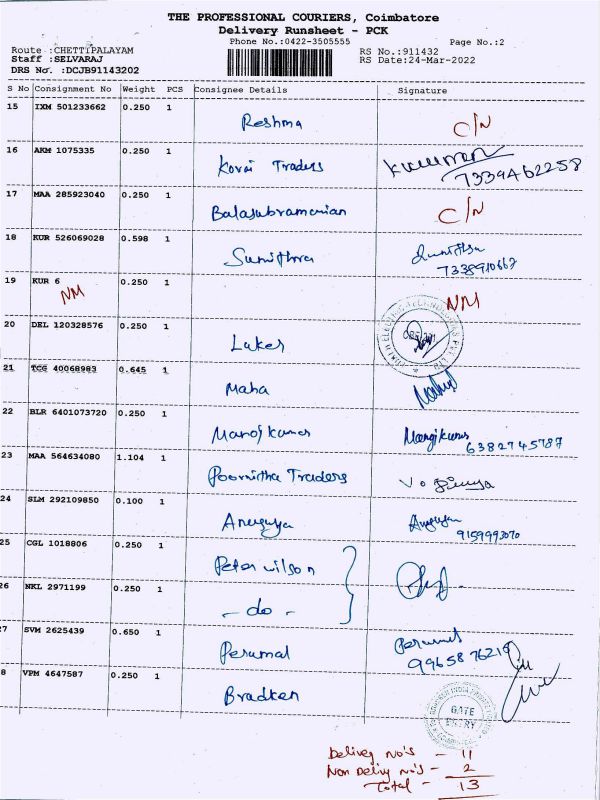 THE PROFESSIONAL COURIERS, Coimbatore
Delivery Runsheet - PCK
Phone No.:0422-3505555 Page No.:2
Route :CHETTIPALAYAM RS No.:911432
Staff :SELVARAJ RS Date:24-Mar-2022
DRS No. :DCJB91143202
S No Consignment No Weight PCS Consignee Details Signature
15 IXM 501233662 0.250 1 Reshma C/N
16 AKM 1075335 0.250 1 Kovai Traders 7339462258
17 MAA 285923040 0.250 1 Balasubramanian C/N
18 KUR 526069028 0.598 1 Sumithra
7338910667
19 KUR 6 0.250 1 NM
NM
20 DEL 120328576 0.250 1 Luker
21 TCG 40068983 0.645 1 Maha
22 BLR 6401073720 0.250 1 Manojkumar 6382745787
23 MAA 564634080 1.104 1 Poornitha Traders
24 SLM 292109850 0.100 1 Anugya
9159993070
25 CGL 1018806 0.250 1 Peter wilson
26 NKL 2971199 0.250 1 - do -
27 SVM 2625439 0.650 1 Perumal Perumal
28 VPM 4647587 0.250 1 Bradken
GATE
ENTRY
Delivey no's - 11
Non Delivy no's - 2
Total - 13